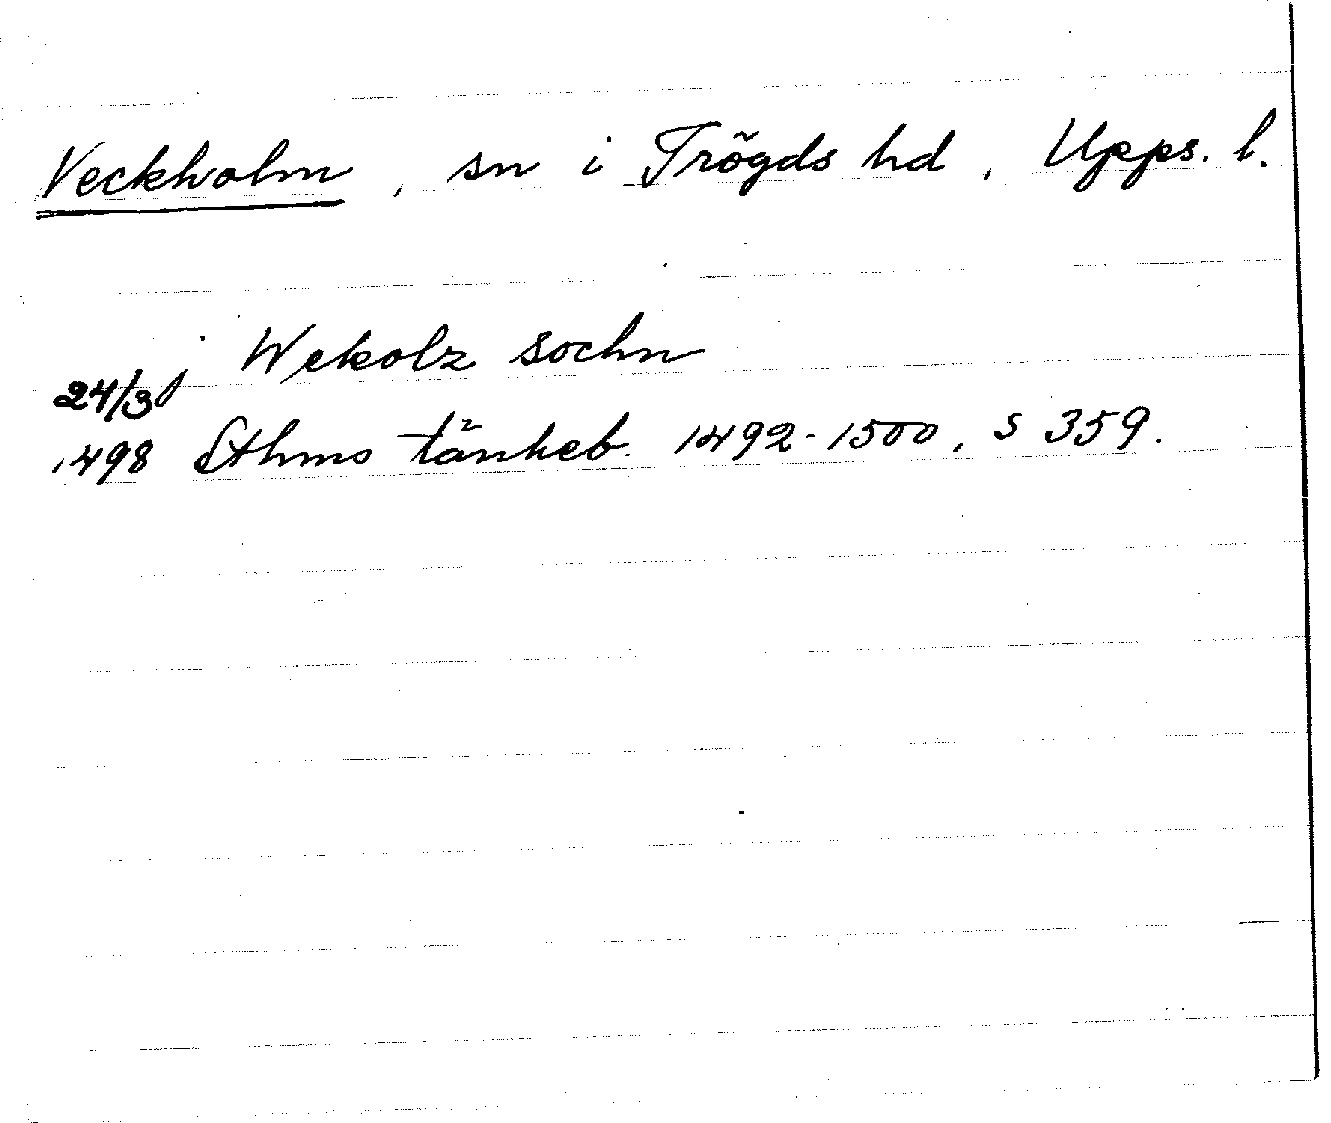 Veckholm, sn i Trögds hd, Upps. l.
j Wekolz sochn
24/3
1498 Sthms tänkeb. 1492-1500, s 359.